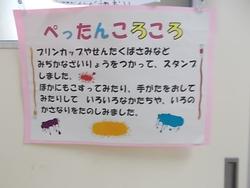 ぺったんころころ
プリンカップやせんたくばさみなど
みぢかなざいりょうをつかって、スタンプ
しました。
ほかにもこすってみたり、手がたをおして
みたりして いろいろなかたちや、いろの
かさなりをたのしみました。